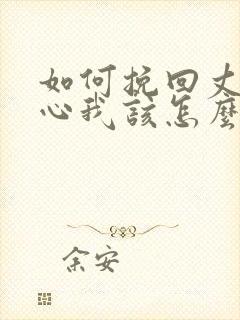 如何挽回丈
心我该怎麽
余安